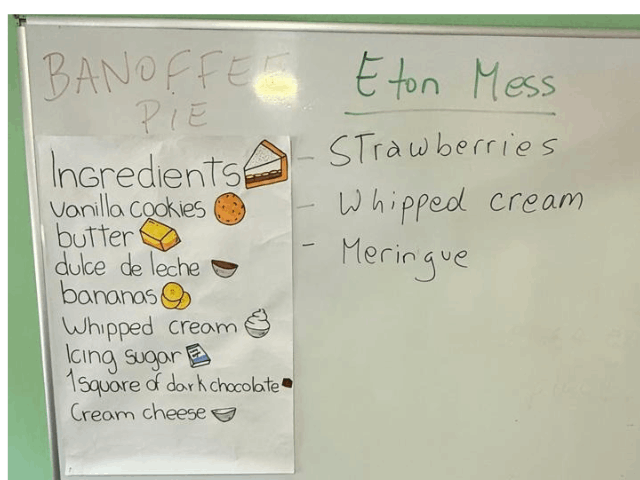 BANOFFEE
PIE
Ingredients
vanilla cookies
butter
dulce de leche
bananas
Whipped cream
Icing sugar
1 square of dark chocolate
Cream cheese
Eton Mess
- STrawberries
- Whipped cream
- Meringue